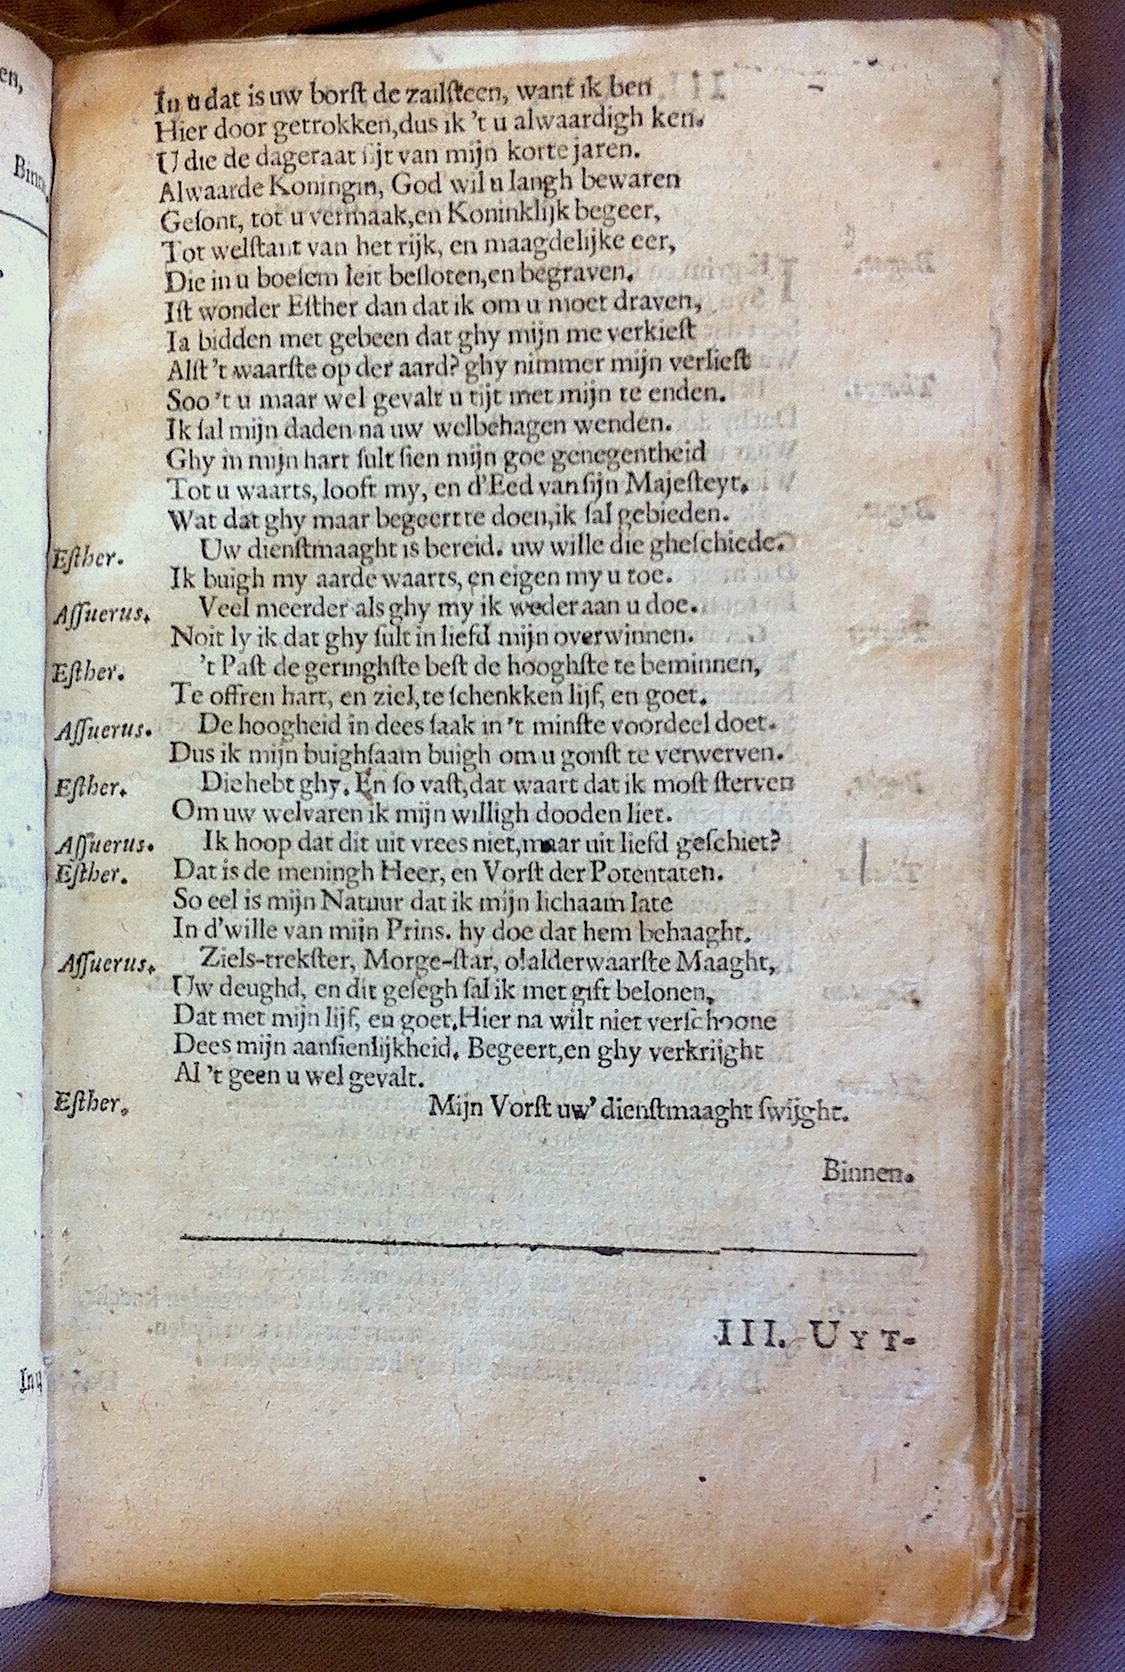 In u dat is uw borſt de zailſteen, want ik ben
Hier door getrokken, dus ik 't u alwaardigh ken.
U die de dageraat ſijt van mijn korte jaren.
Alwaarde Koningin, God wil u langh bewaren
Geſont, tot u vermaak, en Koninklijk begeer,
Tot welſtant van het rijk, en maagdelijke eer,
Die in u boeſem leit beſloten, en begraven.
Iſt wonder Eſther dan dat ik om u moet draven,
Ia bidden met gebeen dat ghy mijn me verkieſt
Alſt 't waarſte op der aard? ghy nimmer mijn verlieſt
Soo 't u maar wel gevalt u tijt met mijn te enden.
Ik ſal mijn daden na uw welbehagen wenden.
Ghy in mijn hart ſult ſien mijn goe genegentheid
Tot u waarts, looft my, en d'Eed van ſijn Majeſteyt.
Wat dat ghy maar begeertte doen, ik ſal gebieden.
Eſther. Uw dienſtmaaght is bereid. uw wille die gheſchiede.
Ik buigh my aarde waarts, en eigen my u toe.
Aſſuerus. Veel meerder als ghy my ik weder aan u doe.
Noit ly ik dat ghy ſult in liefd mijn overwinnen.
Eſther. 't Paſt de geringhſte beſt de hooghſte te beminnen,
Te offren hart, en ziel, te ſchenkken lijf, en goet.
Aſſuerus. De hoogheid in dees ſaak in 't minſte voordeel doet.
Dus ik mijn buighſaam buigh om u gonſt te verwerven.
Eſther. Die hebt ghy. En ſo vaſt, dat waart dat ik moſt ſterven
Om uw welvaren ik mijn willigh dooden liet.
Aſſuerus. Ik hoop dat dit uit vrees niet, maar uit liefd geſchiet?
Eſther. Dat is de meningh Heer, en Vorſt der Potentaten.
So eel is mijn Natuur dat ik mijn lichaam late
In d'wille van mijn Prins. hy doe dat hem behaaght.
Aſſuerus. Ziels-trekſter, Morge-ſtar, o! alderwaarſte Maaght,
Uw deughd, en dit geſegh ſal ik met gift belonen,
Dat met mijn lijf, en goet. Hier na wilt niet verſchoone
Dees mijn aanſienlijkheid. Begeert, en ghy verkrijght
Al 't geen u wel gevalt.
Eſther. Mijn Vorſt uw' dienſtmaaght ſwijght.
Binnen.
III. UYT-